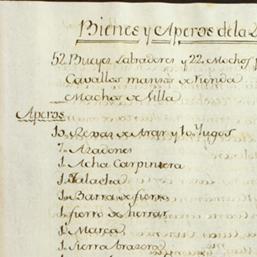 Bienes y Aperos de la
52. Bueyes Labradores y 22. Machos
Cavallos mansos de rienda
Machos de Silla
Aperos
10. Rexas de Arar y 10. Yugos
7. Azadones
1. Acha Carpintera
1. Barra de fierro
1. fierro de herrar
1. Marca
1. Sierra brazera